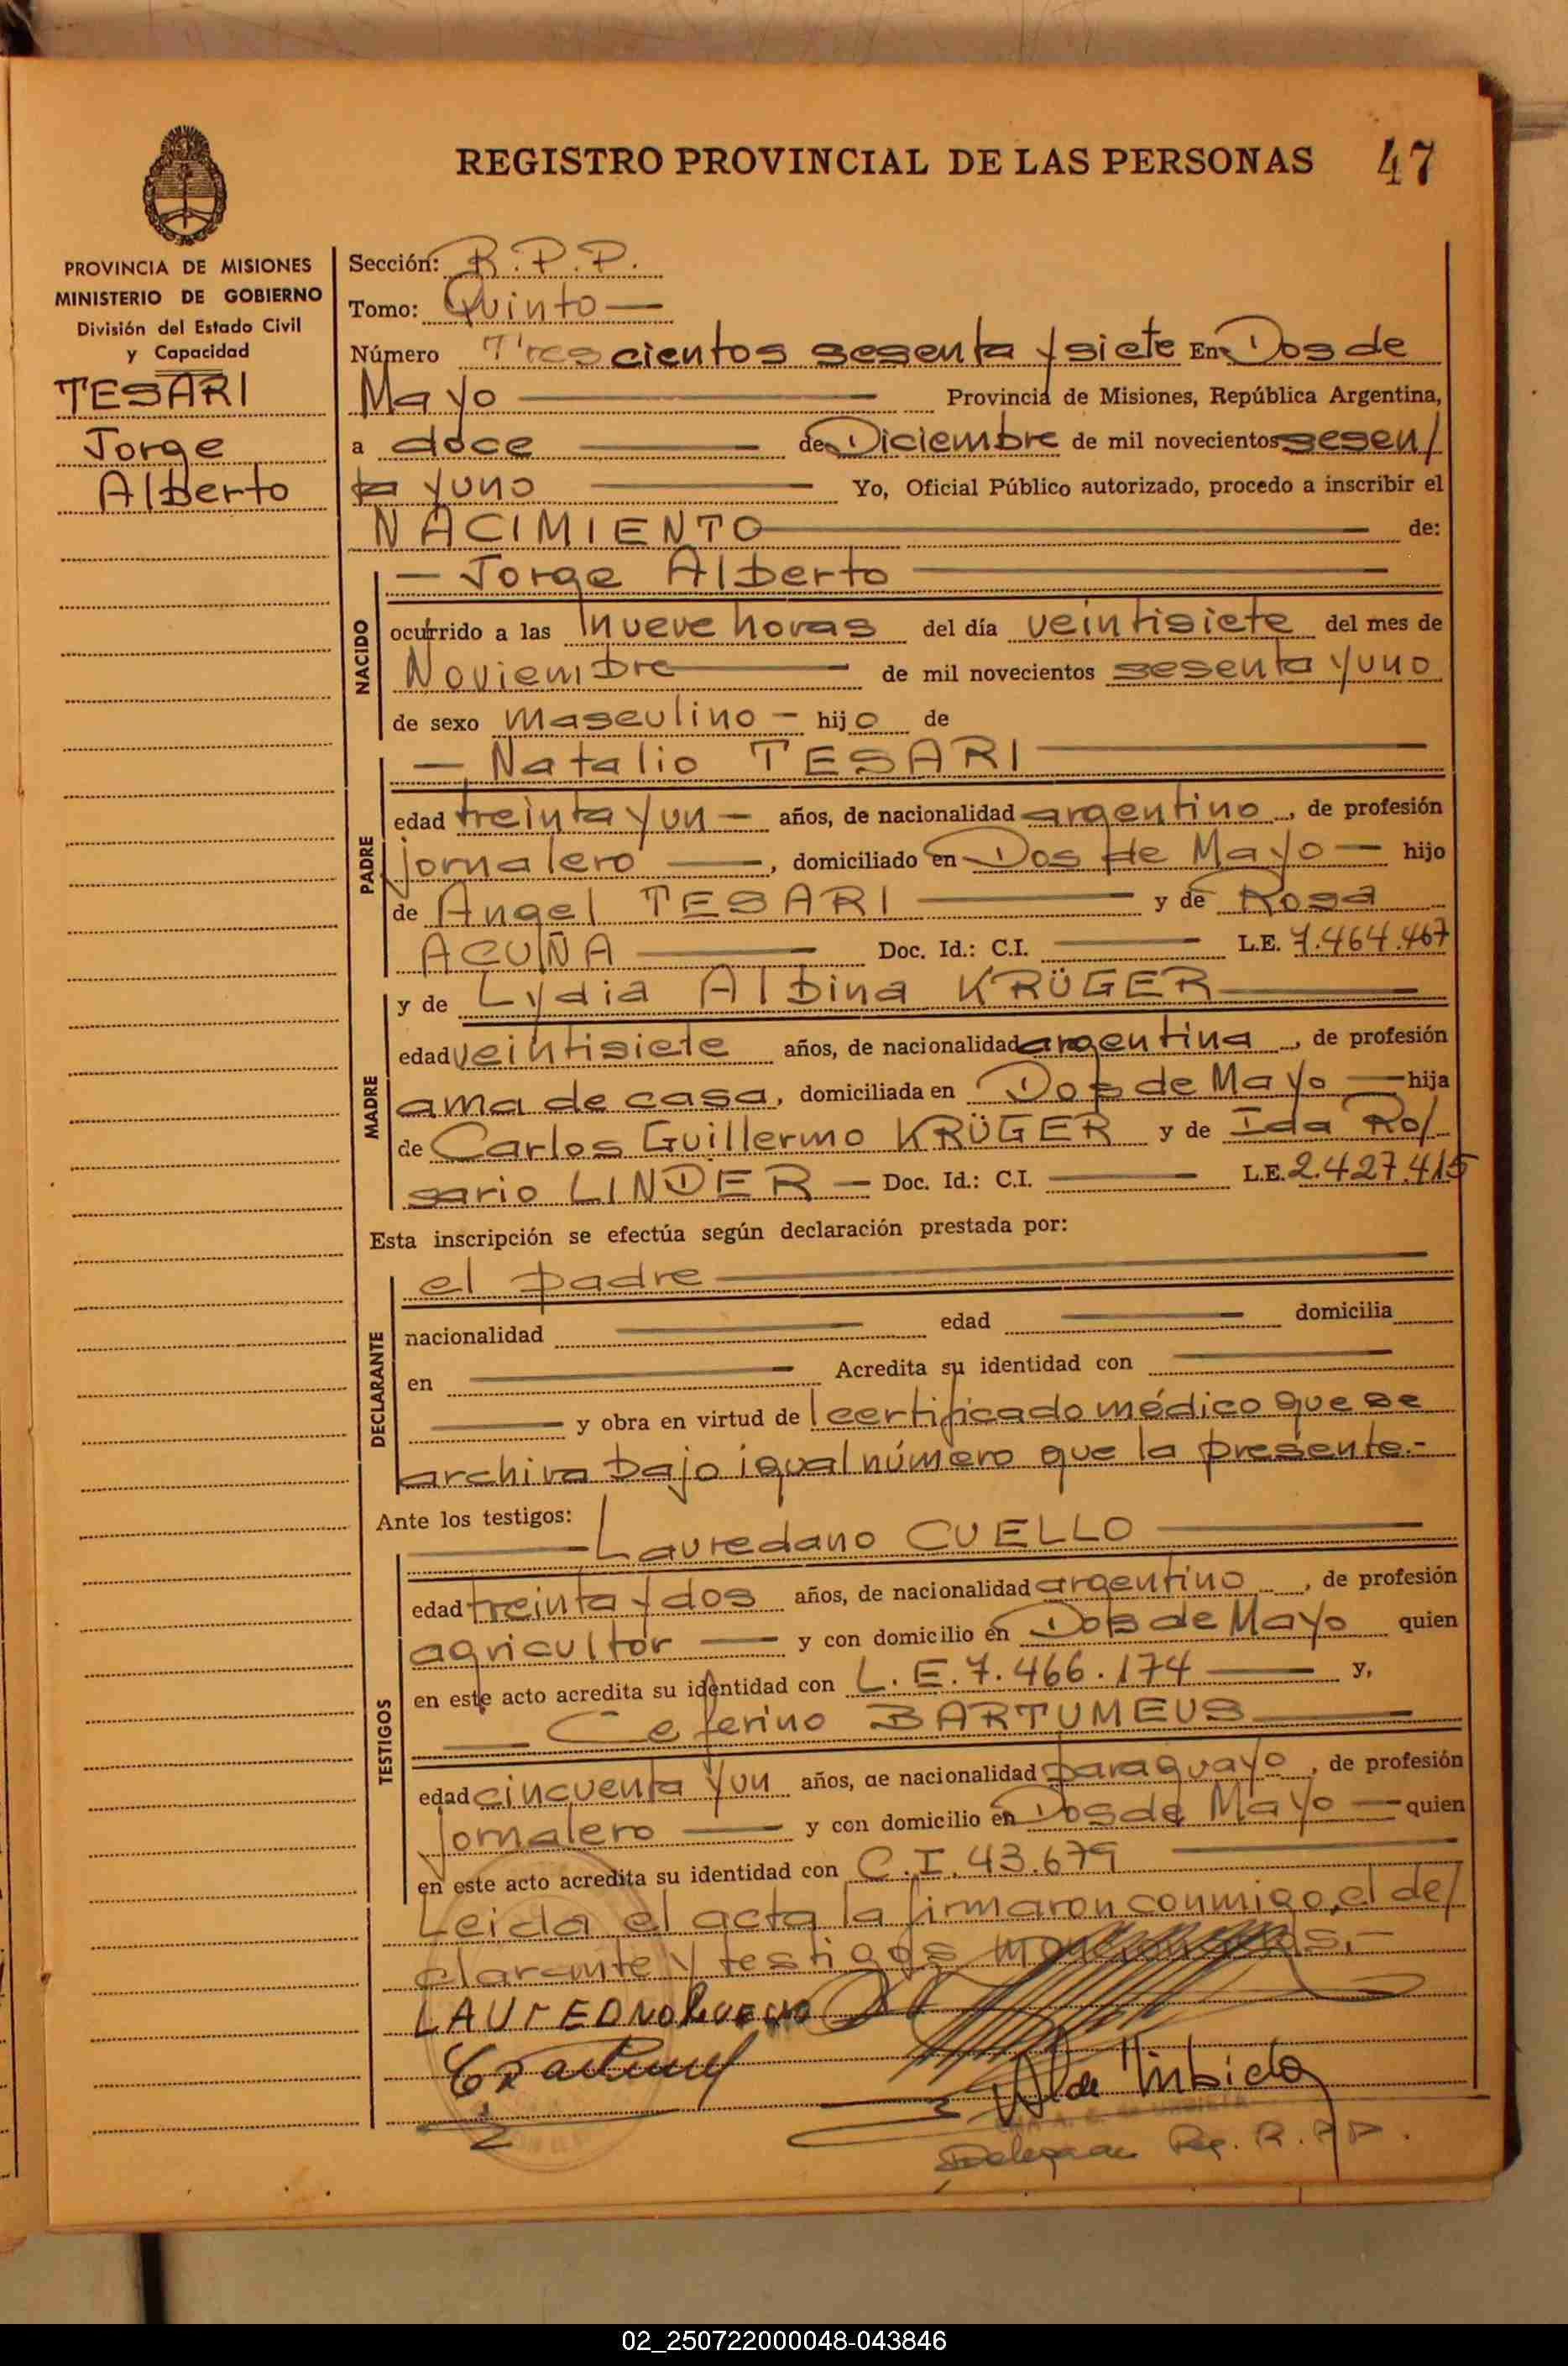 REGISTRO PROVINCIAL DE LAS PERSONAS 47
PROVINCIA DE MISIONES
MINISTERIO DE GOBIERNO
División del Estado Civil
y Capacidad
TESARI
Jorge
Alberto
Sección: R.P.P.
Tomo: Quinto —
Número Trescientos sesenta y siete En Dos de
Mayo — Provincia de Misiones, República Argentina,
a doce — de Diciembre de mil novecientos sesen/
ta y uno — Yo, Oficial Público autorizado, procedo a inscribir el
NACIMIENTO — de:
NACIDO
— Jorge Alberto —
ocurrido a las nueve horas del día veintisiete del mes de
Noviembre — de mil novecientos sesenta y uno
de sexo masculino — hijo de
PADRE
— Natalio TESARI —
edad treinta y un — años, de nacionalidad argentino, de profesión
jornalero —, domiciliado en Dos de Mayo — hijo
de Angel TESARI — y de Rosa
ACUÑA — Doc. Id.: C.I. — L.E. 7.464.467
MADRE
y de Lydia Albina KRÜGER —
edad veintisiete años, de nacionalidad argentina, de profesión
ama de casa, domiciliada en Dos de Mayo — hija
de Carlos Guillermo KRÜGER y de Ida Ro/
sario LINDER — Doc. Id.: C.I. — L.E. 2.427.415
Esta inscripción se efectúa según declaración prestada por:
DECLARANTE
el padre —
nacionalidad — edad — domicilia
en — Acredita su identidad con —
— y obra en virtud de certificado médico que se
archiva bajo igual número que la presente.-
Ante los testigos:
TESTIGOS
— Lauredano CUELLO —
edad treinta y dos años, de nacionalidad argentino, de profesión
agricultor — y con domicilio en Dos de Mayo quien
en este acto acredita su identidad con L.E. 7.466.174 — y,
— Ceferino BARTUMEUS —
edad cincuenta y un años, de nacionalidad paraguayo, de profesión
jornalero — y con domicilio en Dos de Mayo — quien
en este acto acredita su identidad con C.I. 43.679 —
Leida el acta la firmaron conmigo, el de/
clarante y testigos mencionados.-
Delegada Reg. R.P.P.
02_250722000048-043846